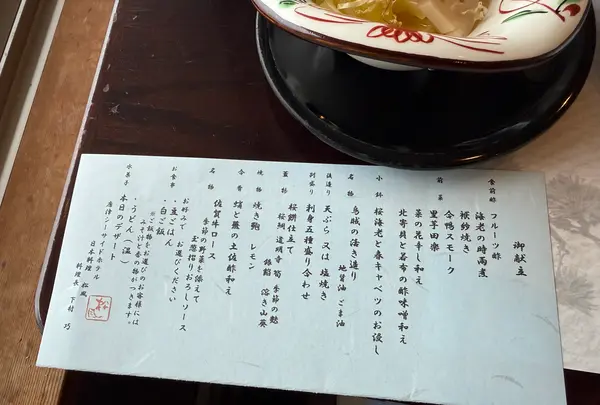 御献立
食前酢 フルーツ酢
海老の時雨煮
袱紗焼き
合鴨スモーク
里芋田楽
前菜
菜の花辛し和え
北寄貝と若布の酢味噌和え
小鉢 桜海老と春キャベツのお浸し
名物 烏賊の活き造り
地醤油 ごま油
後造り 天ぷら 又は 塩焼き
割盛り 刺身五種盛り合わせ
桜餅仕立て
蓋物 桜鯛 道明寺 筍 季節の麩
銀餡 溶き山葵
焼物 焼き鮑 レモン
合肴 蛸と蕪の土佐酢和え
名物 佐賀牛ロース
季節の野菜を添えて
玉葱摺りおろしソース
お食事 お好みで お選びください
・豆ごはん
・白ご飯
※ご飯物をお選びのお客様には
みそ汁と香の物がつきます。
・うどん(温)
水菓子 本日のデザート
唐津シーサイドホテル
日本料理 松風
料理長 下村 巧